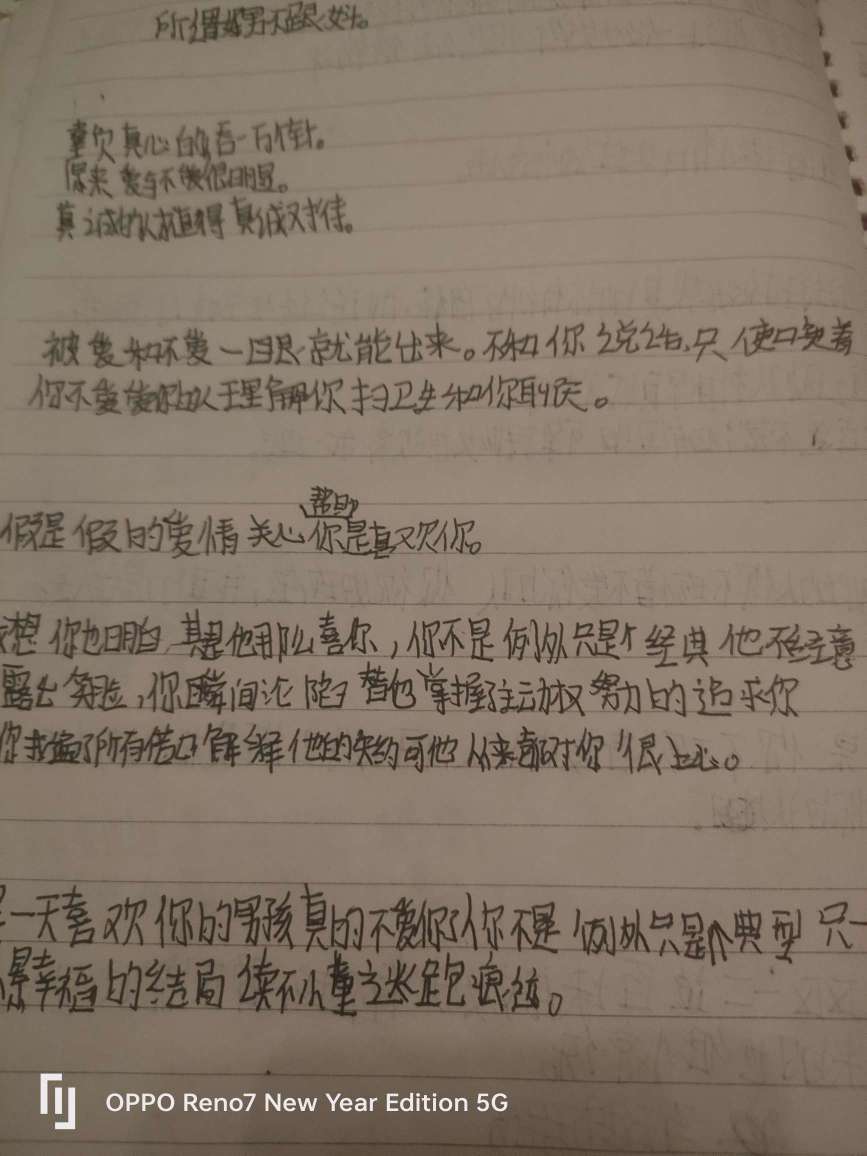 所谓好男不跟女斗。
真心的吞一万针。
原来爱与不爱很明显。
真诚的人就值得真诚对待。
被爱和不爱一眼就能出来。不和你说话,只使口契着
你不爱你的人主理解你扫卫生和你聊天。
假是假的爱情关心帮助你是真欢你。
想你也明白其是他那么喜你,你不是例外只是个经典他不经意
露出笑脸,你瞬间沦陷替他掌握了主动权努力的追乎你
你找遍了所有借口解释他的失约可他从来都对你很上心。
一天喜欢你的男孩真的不爱你了你不是例外只是个典型只一
幸福的结局读不小
OPPO Reno7 New Year Edition 5G